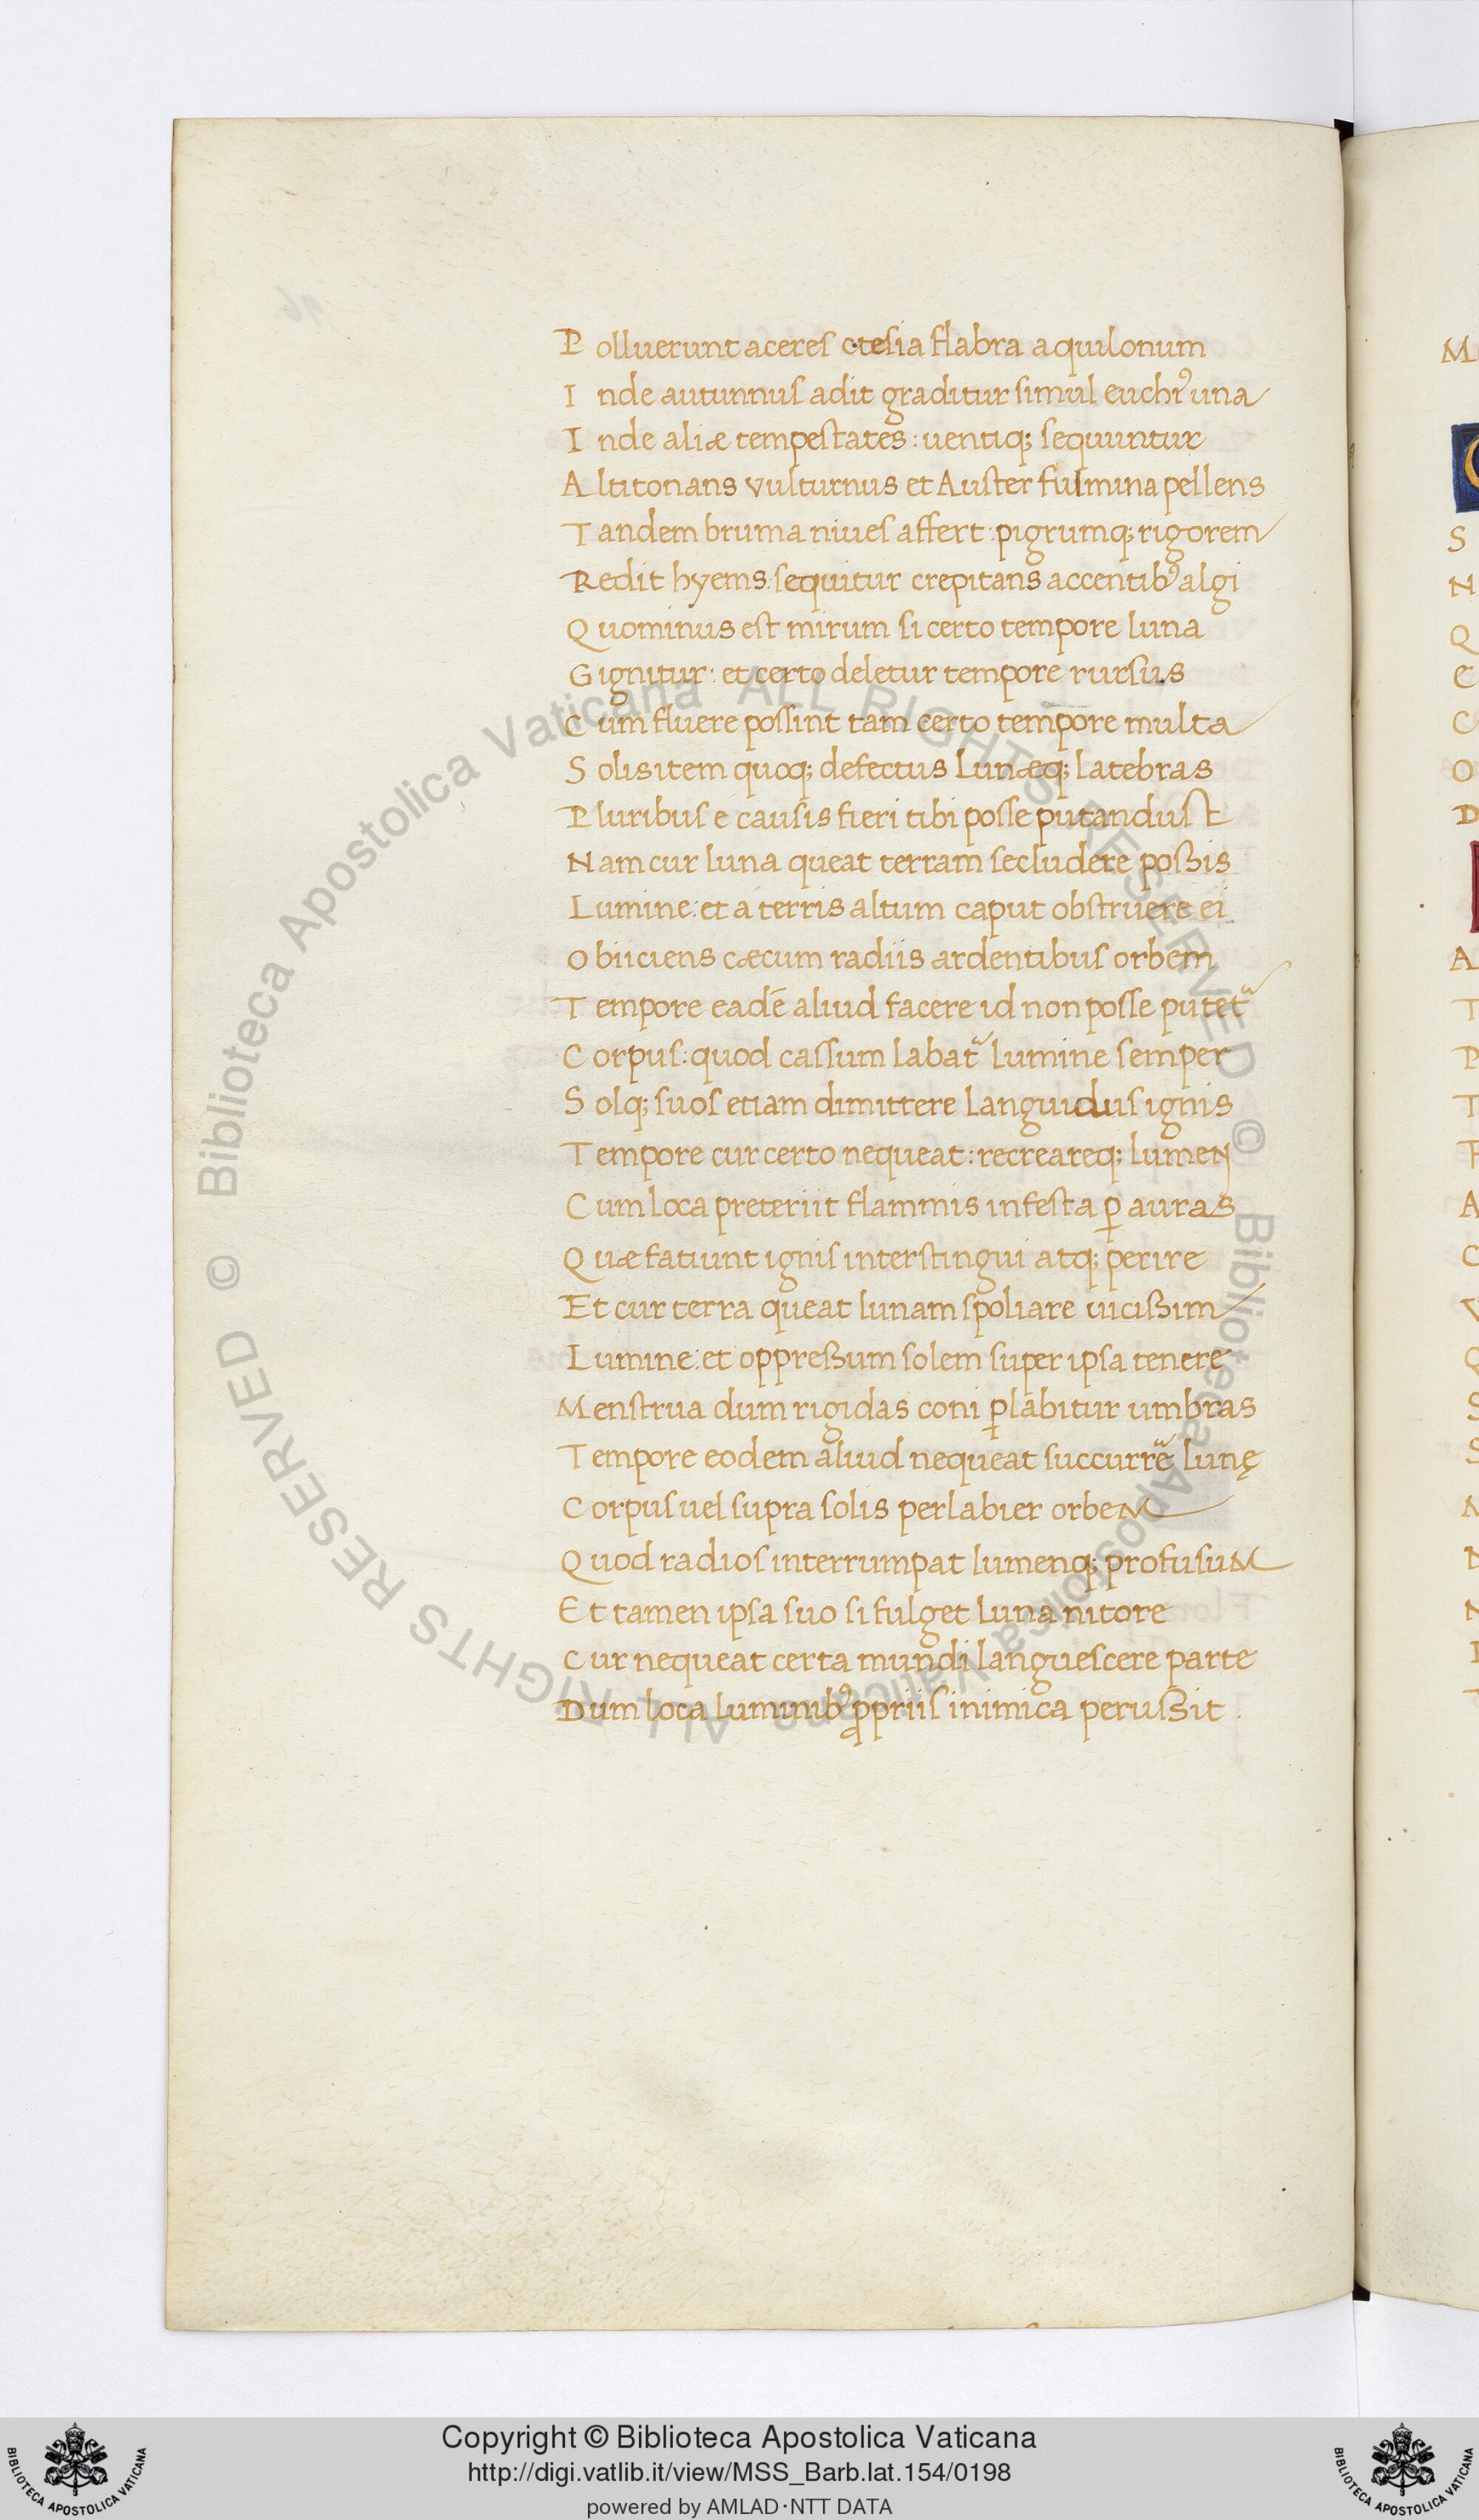 Polluerunt aceres etesia flabra aquilonum
Inde autunnus adit graditur simul euchr᾿ una
Inde aliæ tempestates: uentiq; sequuntur
Altitonans vulturnus et Auster fulmina pellens
Tandem bruma niues affert: pigrumq; rigorem
Redit hyems: sequitur crepitans accentib᾿ algi
Quominus est mirum si certo tempore luna
Gignitur: et certo deletur tempore rursus
Cum fluere possint tam certo tempore multa
Solis item quoq; defectus Lunæq; latebras
Pluribus é causis fieri tibi posse putandust
Nam cur luna queat terram secludere poßis
Lumine: et á terris altum caput obstruere ei
Obiiciens cæcum radiis ardentibus orbem
Tempore eadē aliud facere id non posse putet᷑
Corpus: quod cassum labat᷑ lumine semper
Solq; suos etiam dimittere languidus ignis
Tempore cur certo nequeat: recreareq; lumen
Cum loca preteriit flammis infesta ꝑ auras
Quæ fatiunt ignis interstingui atq; perire
Et cur terra queat lunam spoliare uicißim
Lumine: et oppreßum solem super ipsa tenere
Menstrua dum rigidas coni ꝑlabitur umbras
Tempore eodem aliud nequeat succurrē lunę
Corpus uel supra solis perlabier orbem
Quod radios interrumpat lumenq; profusum
Et tamen ipsa suo si fulget luna nitore
Cur nequeat certa mundi languescere parte
Dum loca luminib᾿ ꝓpriis inimica perußit.
M
S
N
Q
C
O
D
A
T
P
T
Copyright © Biblioteca Apostolica Vaticana
http://digi.vatlib.it/view/MSS_Barb.lat.154/0198
powered by AMLAD·NTT DATA
BIBLIOTECA APOSTOLICA VATICANA
BIBLIOTECA APOSTOLICA VATICANA
© Biblioteca Apostolica Vaticana ALL RIGHTS RESERVED © Biblioteca Apostolica Vaticana ALL RIGHTS RESERVED